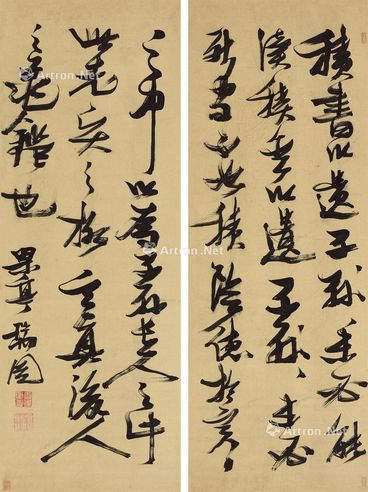 積書以遺子孫〻未必能
讀積金以遺子孫〻未必
守不如積陰德於冥〻
之中以為子孫長久之計
此先之格言真後人
之龜鑑也
果亭瑞圖
Artron.Net
Artron.Net
Artron.Net
Artron.Net